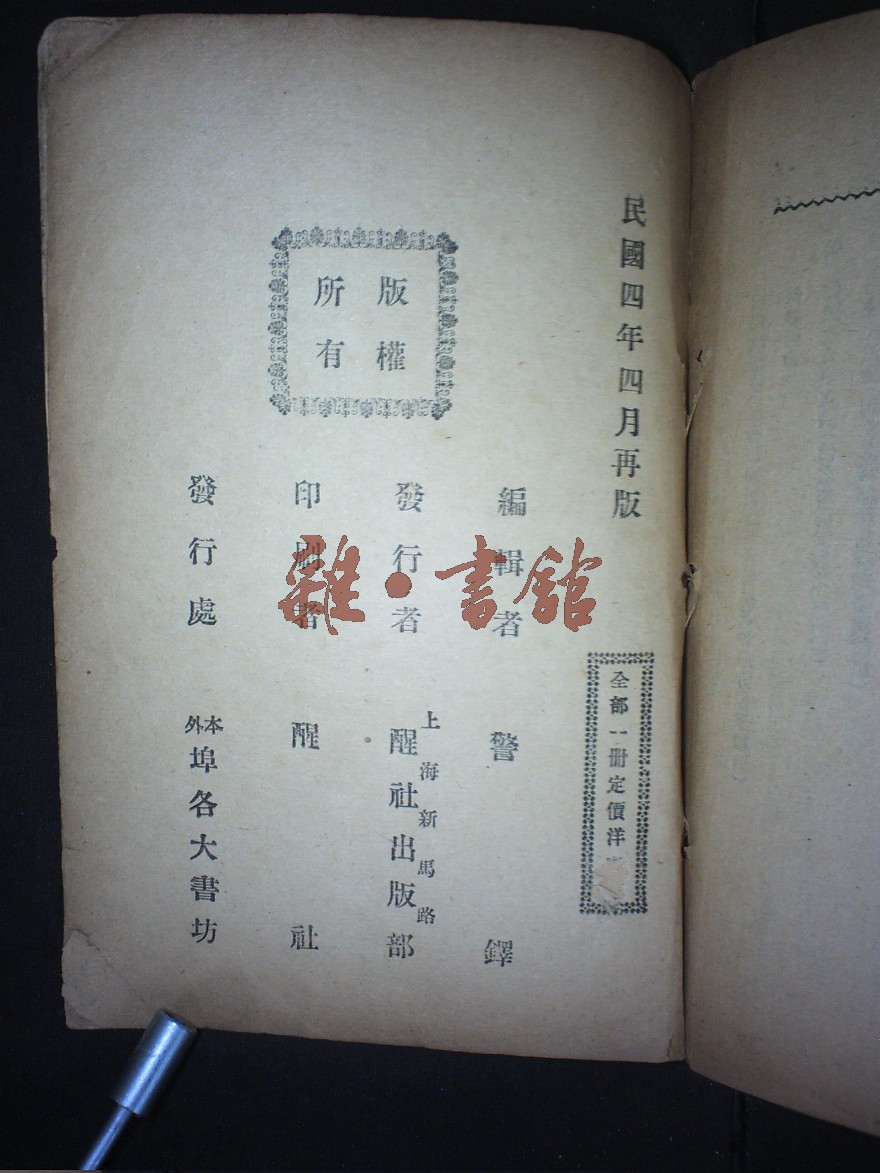 民國四年四月再版
全部一冊定價洋
版權
所有
編輯者 警鐸
發行者 上海新馬路 醒社出版部
印刷者 醒社
發行處 本外埠各大書坊
雜·書館